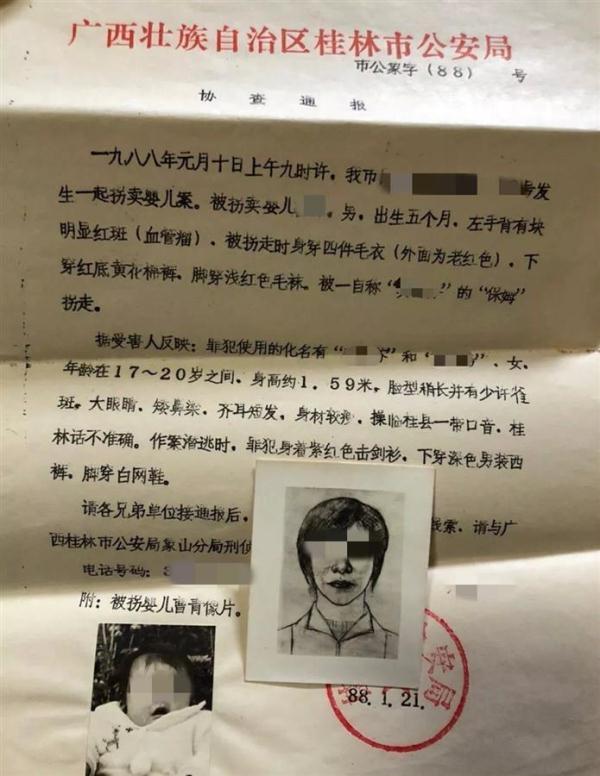 广西壮族自治区桂林市公安局
市公案字(88) 号
协查通报
一九八八年元月十日上午九时许,我市 号发
生一起拐卖婴儿案。被拐卖婴儿 ,男,出生五个月,左手背有块
明显红斑(血管瘤),被拐走时身穿四件毛衣(外面为老红色),下
穿红底黄花棉裤,脚穿浅红色毛袜。被一自称“ ”的“保姆”
拐走。
据受害人反映:罪犯使用的化名有“ ”和“ ”,女,
年龄在17~20岁之间,身高约1.59米,脸型稍长并有少许雀
斑,大眼睛,矮鼻梁,齐耳短发,身材较瘦,操临桂县一带口音,桂
林话不准确。作案潜逃时,罪犯身着紫红色击剑衫,下穿深色男装西
裤,脚穿白网鞋。
请各兄弟单位接通报后, 线索,请与广
西桂林市公安局象山分局刑侦
电话号码:3
附:被拐婴儿 像片。
88.1.21.